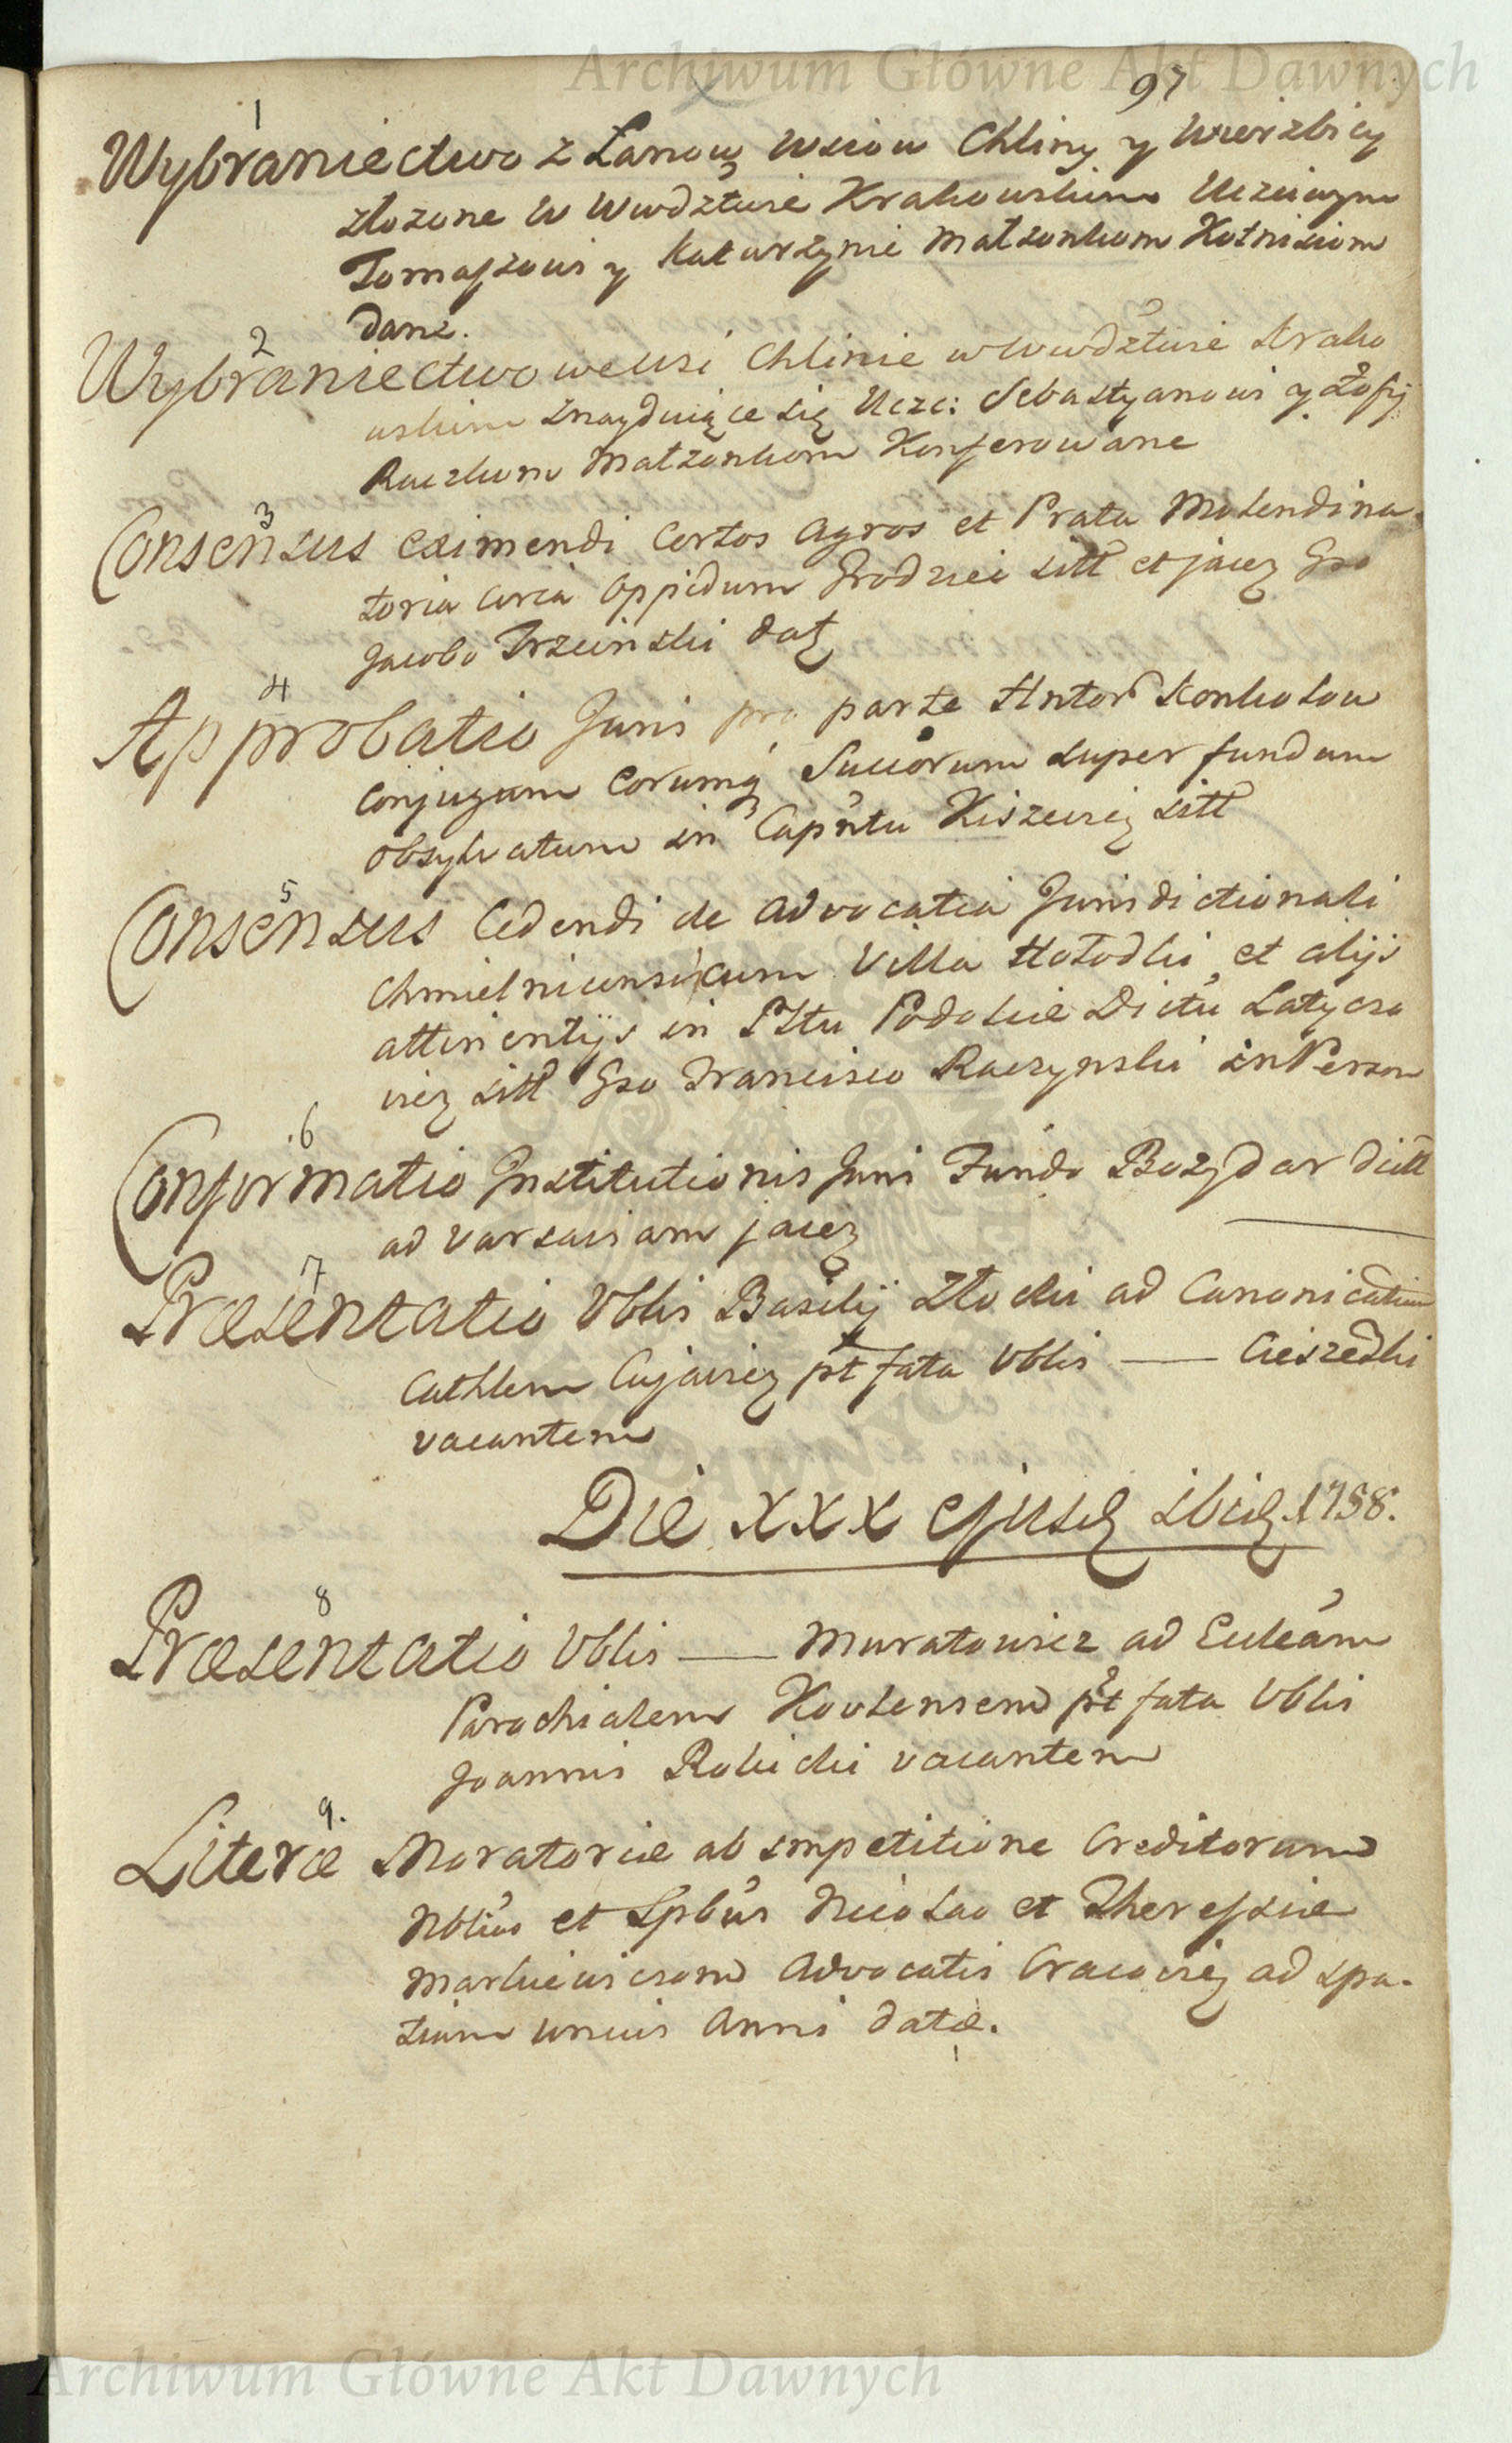 Archiwum Główne Akt Dawnych
97
1
Wybraniectwo z Łanow Wsiow Chliny y Wierzbicy
złozone w Wwdztwie Krakowskim Uczciwym
Tomaszowi y Katarzynie Małzonkom Kotnisiom
dane.
2
Wybraniectwo we Wsi Chlinie w Wwdztwie Krako
wskim znayduiące się Ucze: Sebastyanowi y Zofij
Raczkom Małzonkom Konferowane
3
Consensus eximendi Certos Agros et Prata Molendina
toria circa Oppidum Grodziec sitt et jacez Gso
Jacobo Trzcinski datz
4
Approbatio Juris pro parte Anton Konkolow
Conjugum eorumq Succorum super fundum
obsylvatum in Capntu Kiszewiez sitt
5
Consensus Cedendi de Advocatia Jurisdictionali
Chmielnicensi cum Villa Hołodki et alijs
attinentijs in Pltu Podoliæ Dictu Latyczo
viez sitt Gso Francisco Raczynski in Person
6
Confirmatio Institutionis Juris Fundo Bozydar dictt
ad Varsaviam jacez
7
Præsentatio Vblis Basilij Zło cki ad Canonicatum
Cathlem Cujaviez pt fata Vblis — Cieszedzki
vacantem
Die XXX ejusdz ibidz 1758.
8
Præsentatio Vblis — Muratowicz ad Eccleam
Parochialem Kovlensem pt fata Vblis
Joannis Robicki vacantem
9.
Literæ Moratoriæ ab impetitione Creditorum
Nblius et Spbus Nicolao et Theressiæ
Markiewiczom Advocatis Cracoviez ad spa-
tium unius Anni datæ.
Archiwum Główne Akt Dawnych